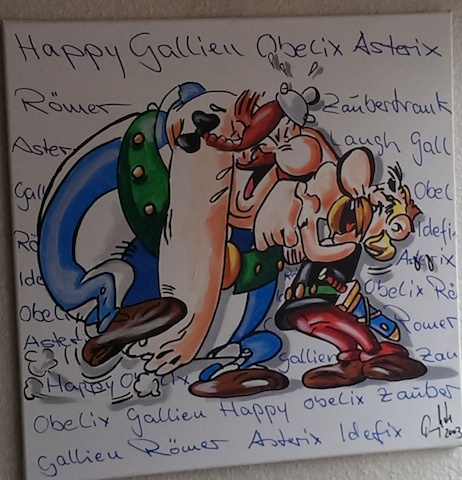 Happy Gallien Obelix Asterix
Römer Zaubertrank
Aster Laugh Gall
Gall Obel
Rö Idefix
Ide Asterix
Obel Obelix Rö
Aster Römer
Gallien Zau
Happy Obelix
Obelix Gallien Happy Obelix Zauber
Gallien Römer Asterix Idefix
2003